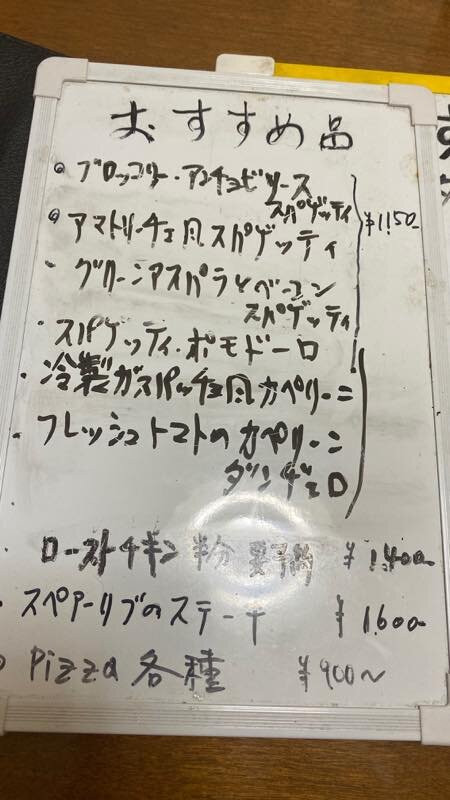 おすすめ品
・ブロッコリー・アンチョビソース
スパゲッティ
¥1,150-
・アマトリーチェ風スパゲッティ
・グリーンアスパラとベーコン
スパゲッティ
・スパゲッティ・ポモドーロ
・冷製ガスパッチョ風カペリーニ
・フレッシュトマトのカペリーニ
ダンジェロ
ローストチキン 半分 要予約 ¥1,400-
・スペアーリブのステーキ ¥1,600-
・Pizza各種 ¥900〜